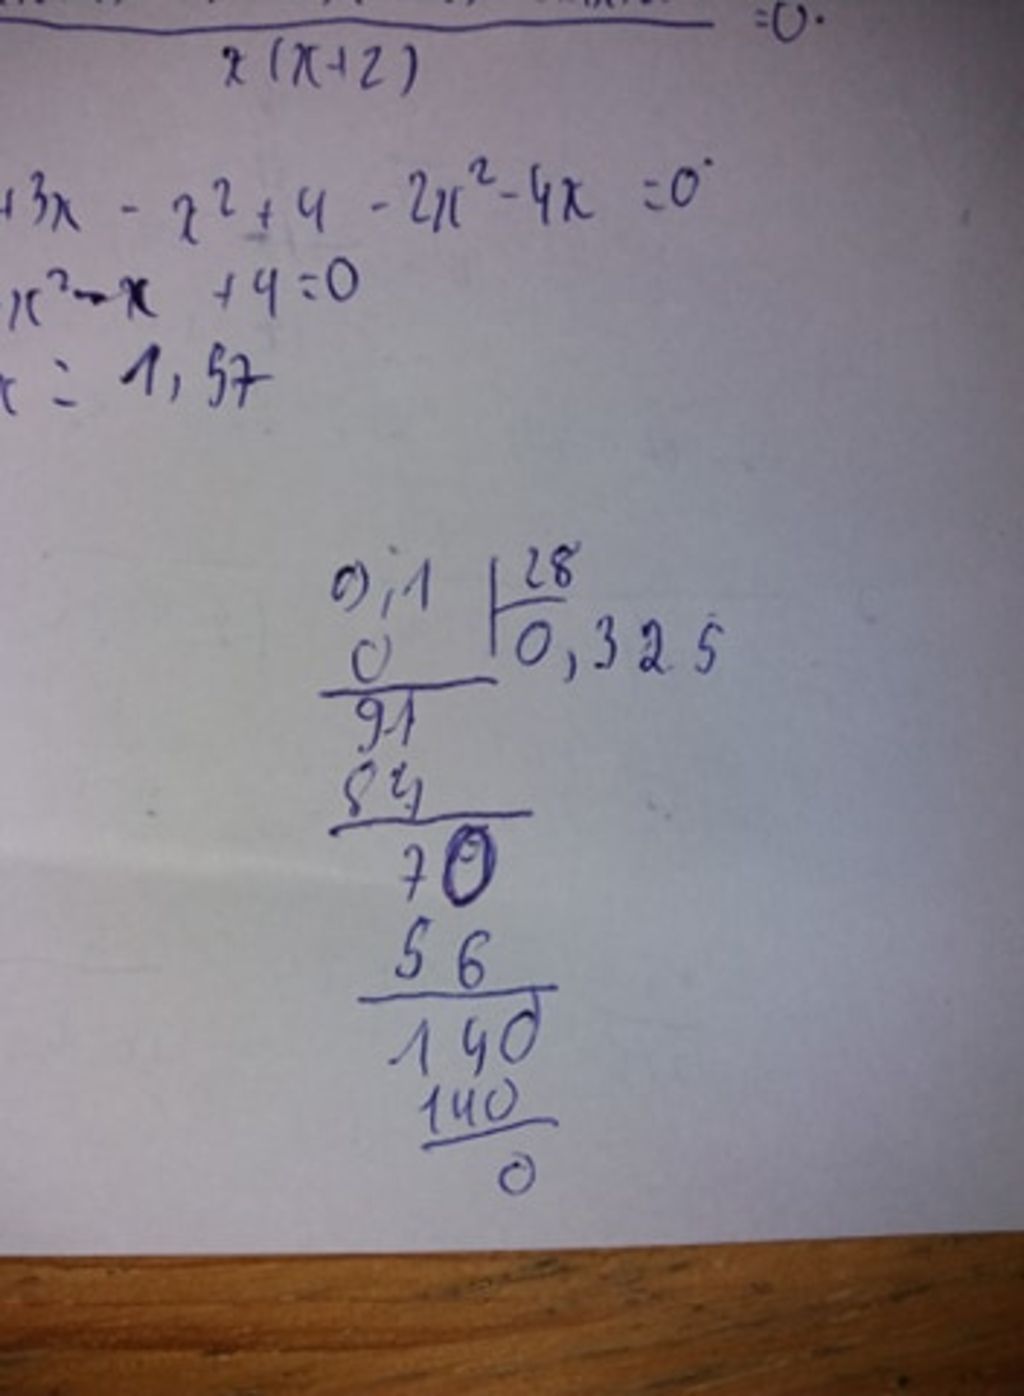 =0.
x(x+2)
+3x - x²+4 - 2x²-4x =0
x²-x +4=0
x = 1,57
9,1 28
0 0,325
91
84
70
56
140
140
0